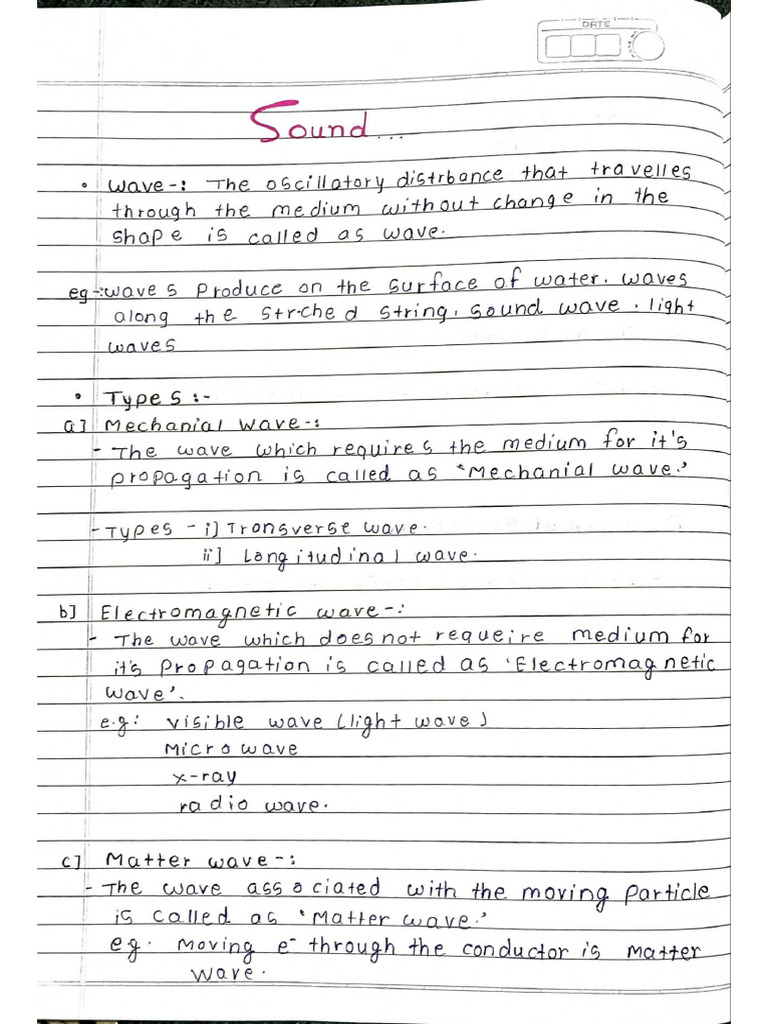 DATE
Sound...
• Wave-: The oscillatory distrbance that travelles
through the medium without change in the
shape is called as wave.
eg-: waves produce on the surface of water. waves
along the strched string. sound wave. light
waves
• Types :-
a] Mechanial wave-:
- The wave which requires the medium for it's
propagation is called as 'Mechanial wave.'
- Types - i] Transverse wave.
ii] Longitudinal wave.
b] Electromagnetic wave-:
- The wave which does not requeire medium for
it's propagation is called as 'Electromagnetic
wave'.
e.g: visible wave (light wave)
Microwave
x-ray
radio wave.
c] Matter wave-:
- The wave associated with the moving particle
is called as 'Matter wave.'
eg. Moving e⁻ through the conductor is matter
wave.